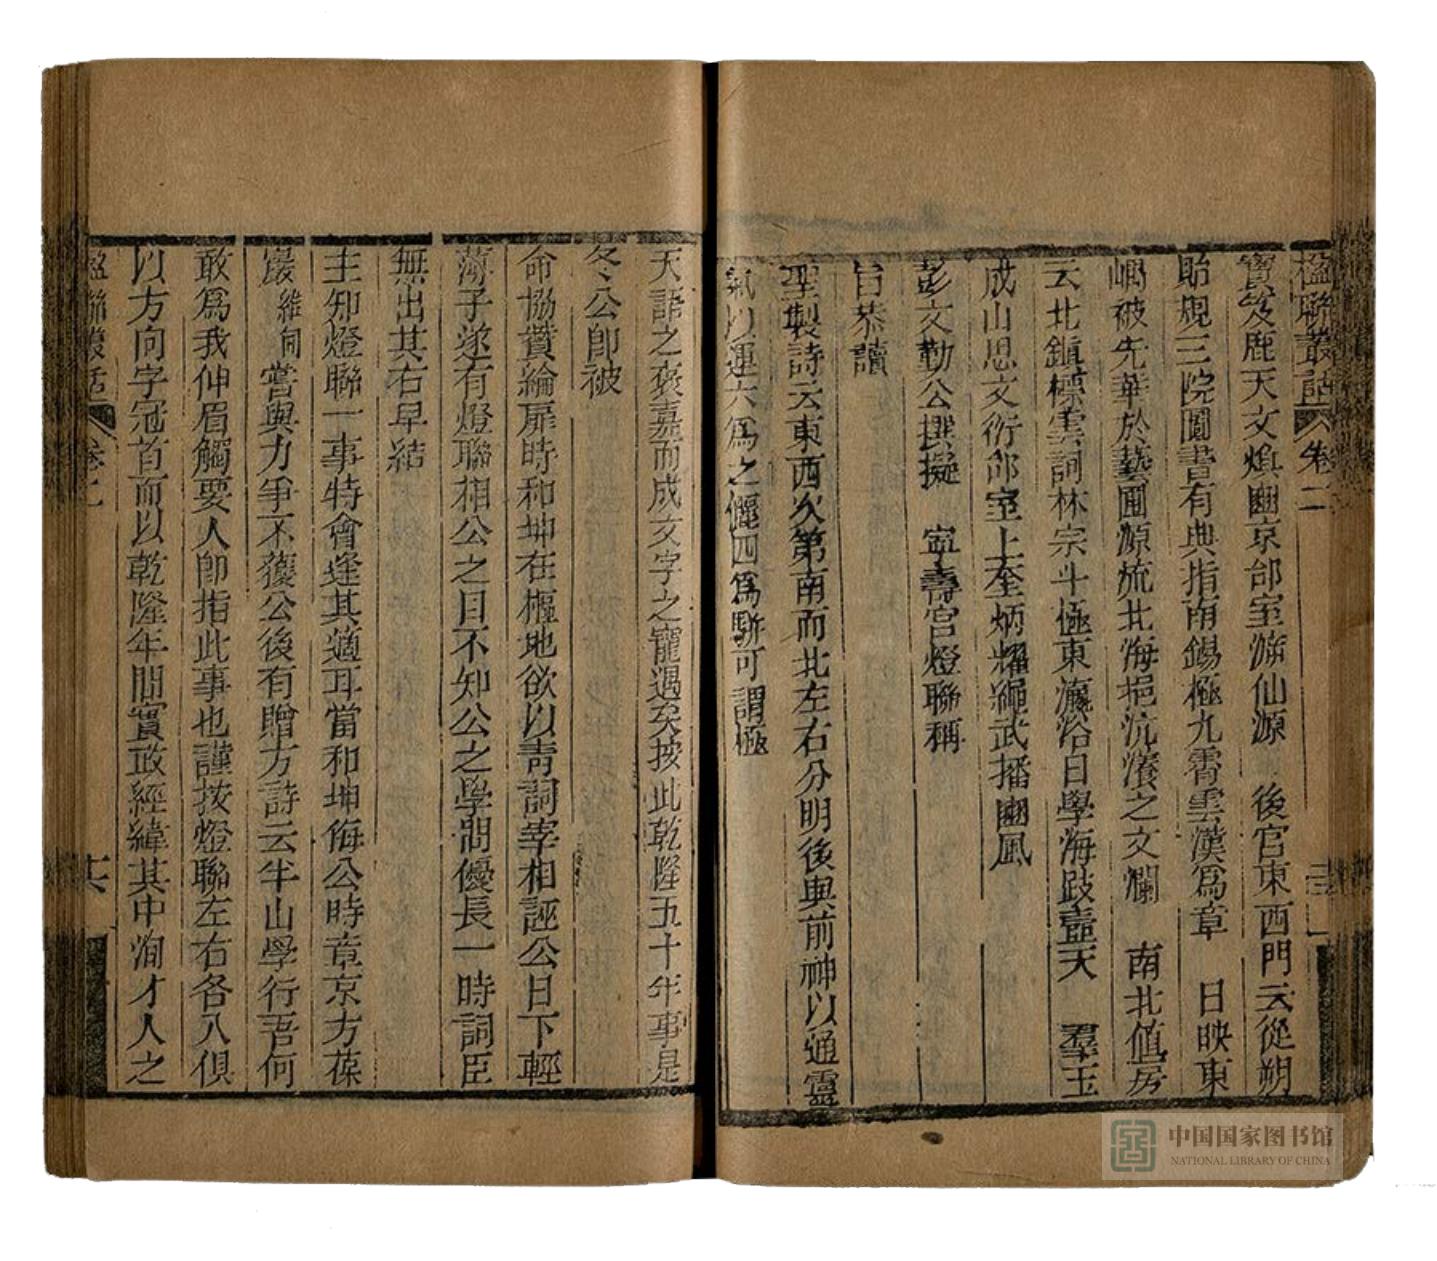 楹聯叢話 卷二
寶笈鹿天文煥豳京邰室游仙源 後宮東西門云從朔
貽規三院圖書有典指南錫極九霄雲漢爲章 日映東
嵎被先華於藝圃源流北海挹沆瀁之文瀾 南北值房
云北鎮標雲詞林宗斗極東瀛浴日學海跂壺天 羣玉
成山思文衍邰室上奎炳燿繩武播豳風
彭文勤公撰擬 寧壽宮燈聯稱
旨恭讀
聖製詩云東西次第南而北左右分明後與前神以通靈
氣以運六爲之儷四爲駢可謂極
天語之褒嘉而成文字之寵遇矣按此乾隆五十年事是
冬公卽被
命協贊綸扉時和坤在樞地欲以靑詞宰相誣公日下輕
薄子遂有燈聯相公之目不知公之學問優長一時詞臣
無出其右早結
主知燈聯一事特會逢其適耳當和坤侮公時章京方葆
巖 維甸 嘗與力爭不獲公後有贈方詩云半山學行吾何
敢爲我伸眉觸要人卽指此事也謹按燈聯左右各八俱
以方向字冠首而以乾隆年間實政經緯其中洵才人之
楹聯叢話 卷二